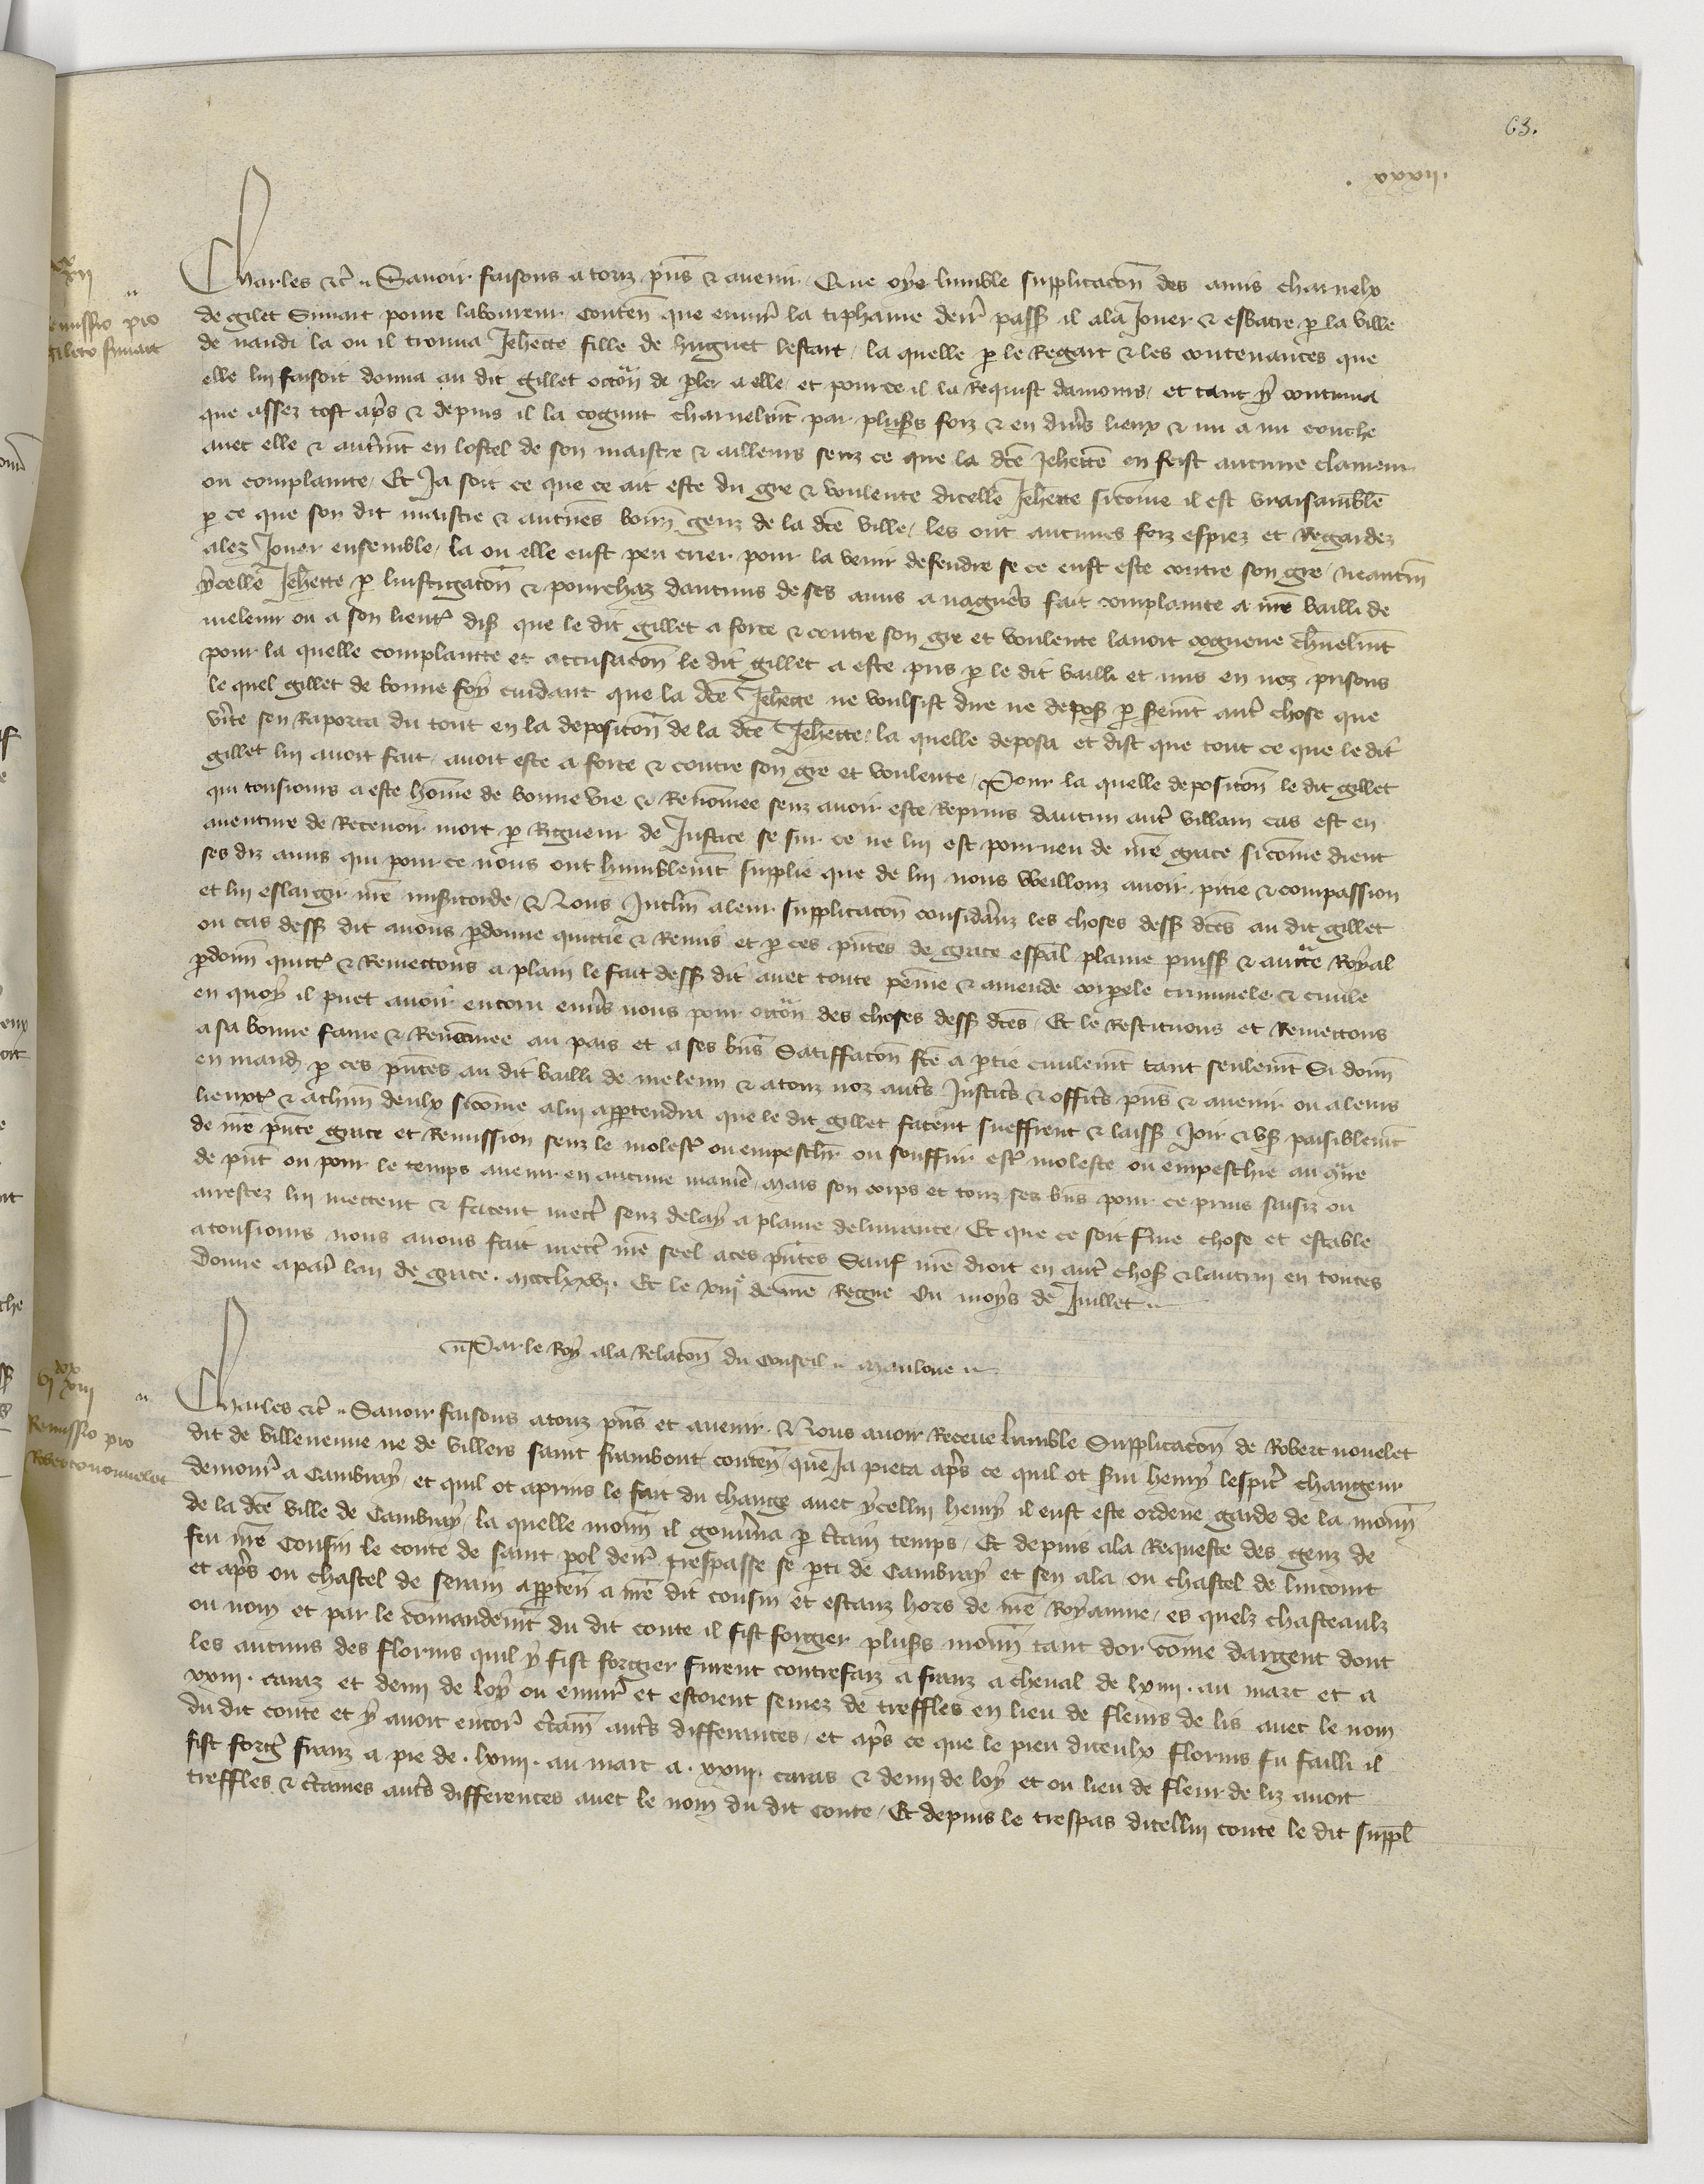 63.
. xxxii.
Charles etc. Savoir faisons a touz pns et avenir Que oye lumble supplicacon des amis charnelx
de gilet Simart povre laboureur conten que envir la tiphaine derr pass il ala Jouer et esbatre p la ville
de nandi la ou il trouva Jehecte fille de huguet lestart la quelle p le Regart et les contenances que
elle lui faisoit donna au dit gillet occon de pler a elle et pour ce il la Requist damours et tant y continua
que assez tost aps et depuis il la cognut charnelmt par plusrs foiz et en divs lieux et nu a nu couche
avec elle et autremt en lostel de son maistre et ailleurs senz ce que la dce Jehecte en feist aucune clameur
ou complainte Et Ja soit ce que ce ait este du gre et voulente dicelle Jehecte sicome il est vraisamble
p ce que son dit maistre et aucunes bonn genz de la dce ville les ont aucunes foiz espiez et Regardez
alez Jouer ensemble la ou elle eust peu crier pour la venir defendre se ce eust este contre son gre neantm
ycelle Jehecte p linstigacon et pourchaz daucuns de ses amis a nagueres fait complainte a nre bailli de
meleun ou a son lieut dis que le dit gillet a force et contre son gre et voulente lavoit cogneue charnelmt
pour la quelle complainte et accusacon le dit gillet a este pris p le dit bailli et mis en noz prisons
le quel gillet de bonne foy cuidant que la dce Jehecte ne voulsist dire ne depos p seremt autre chose que
verite sen Raporta du tout en la deposicon de la dce Jehecte la quelle deposa et dist que tout ce que le dit
gillet lui avoit fait avoit este a force et contre son gre et voulente Pour la quelle deposicon le dit gillet
qui tousjours a este home de bonne vie et Renomee senz avoir este Repris daucun autre villain cas est en
aventure de Recevoir mort p Rigueur de Justice se sur ce ne lui est pourveu de nre grace sicome dient
ses diz amis qui pour ce nous ont humblemt supplie que de lui nous weillonz avoir pitie et compassion
et lui eslargir nre misericorde Et Nous Inclin a leur supplicacon considanz les choses dess dces au dit gillet
ou cas dess dit avons pdonne quictie et Remis et p ces pntes de grace espal plaine puiss et aucte Royal
pdonn quict et Remectons a plain le fait dess dit avec toute peine et amende corpele criminele et civile
en quoy il puet avoir encoru envs nous pour occon des choses dess dces Et le Restituons et Remectons
a sa bonne fame et Renomee au pais et a ses bns Satiffacon fce a ptie civilemt tant seulemt Si donn
en mand p ces pntes au dit bailli de meleun et a touz noz autrs Justics et offics pns et avenir ou a leurs
lieuxt et a chun deulx sicome a lui apptendra que le dit gillet facent sueffrent et laiss Joir et us paisiblemt
de nre pnte grace et Remission senz le molest ou empeschr ou souffrir est moleste ou empeschie au qre
de pnt ou pour le temps avenir en aucune manie mais son corps et touz ses bns pour ce prins saisiz ou
arrestez lui mectent et facent mectr senz delay a plaine delivrance Et que ce soit ferme chose et estable
a tousjours nous avons fait mectr nre seel a ces pntes Sauf nre droit en autr chos et lautrui en toutes
Donne a pars lan de grace. mccclxxvj. Et le xiije de nre Regne Ou moys de Juillet
Par le Roy a la Relacon du Conseil Mauloue
xx xii
Remissio pro
gileto Simart
Charles etc. Savoir faisons a touz pns et avenir. Nous avoir Receue lumble Supplicacon de Robert nouelet
dit de villeneuve ne de villers saint frambout conten que Ja pieca aps ce quil ot svi henry lespicr changeur
demour a Cambray et quil ot apris le fait du change avec ycellui henry il eust este ordene garde de la monn
de la dce ville de Cambray la quelle monn il gouvna p ctain temps Et depuis a la Requeste des genz de
feu nre Cousin le conte de saint pol derr trespasse se pti de Cambray et sen ala ou chastel de lincourt
et aps ou chastel de serain apptens a nre dit cousin et estanz hors de nre Royaume es quelz chasteaulx
ou nom et par le comandemt du dit conte il fist forgier plusrs monn tant dor come dargent dont
les aucuns des florins quil y fist forgier furent contrefaiz a franz a cheval de lxiiij. au marc et a
xxiij. caraz et demi de loy ou envir et estoient semez de treffles en lieu de fleurs de lis avec le nom
du dit conte et y avoit encor ctain autrs differances et aps ce que le pieu diceulx florins fu failli il
fist forgr franz a pie de . lxiiij. au marc a . xxiij. caras et demi de loy et ou lieu de fleur de liz avoit
treffles et ctaines autrs differences avec le nom du dit conte Et depuis le trespas dicellui conte le dit suppl
vj xx xiii
Remissio pro
Roberto nouvelet